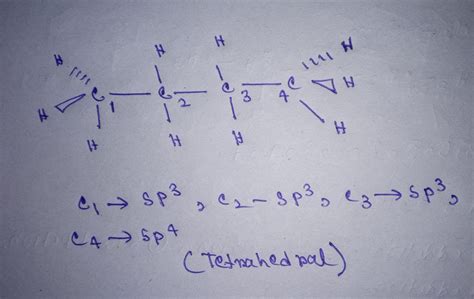 H H H H
H C 1 C 2 C 3 C 4 H
H H H H
C1 → sp3, C2 - sp3, C3 → sp3,
C4 → sp4
(Tetrahedral)